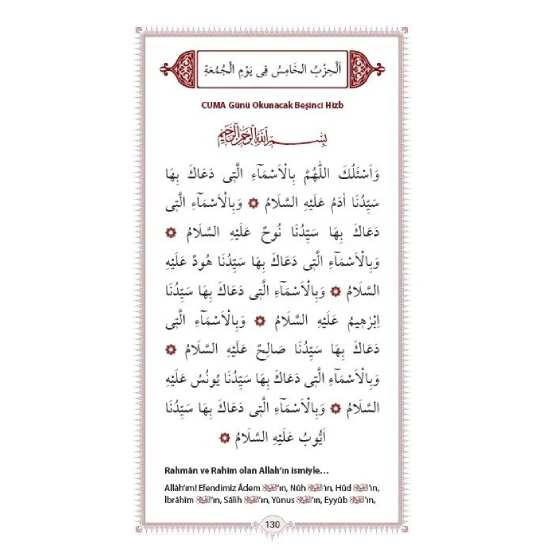 اَلْحِزْبُ الْخَامِسُ فِى يَوْمِ الْجُمُعَةِ
CUMA Günü Okunacak Beşinci Hizb
بِسْمِ اللّٰهِ الرَّحْمٰنِ الرَّحِيمِ
وَاَسْئَلُكَ اللّٰهُمَّ بِالْاَسْمَٓاءِ الَّتِى دَعَاكَ بِهَا
سَيِّدُنَا اٰدَمُ عَلَيْهِ السَّلَامُ ۞ وَبِالْاَسْمَٓاءِ الَّتِى
دَعَاكَ بِهَا سَيِّدُنَا نُوحٌ عَلَيْهِ السَّلَامُ ۞
وَبِالْاَسْمَٓاءِ الَّتِى دَعَاكَ بِهَا سَيِّدُنَا هُودٌ عَلَيْهِ
السَّلَامُ ۞ وَبِالْاَسْمَٓاءِ الَّتِى دَعَاكَ بِهَا سَيِّدُنَا
اِبْرٰهِيمُ عَلَيْهِ السَّلَامُ ۞ وَبِالْاَسْمَٓاءِ الَّتِى
دَعَاكَ بِهَا سَيِّدُنَا صَالِحٌ عَلَيْهِ السَّلَامُ ۞
وَبِالْاَسْمَٓاءِ الَّتِى دَعَاكَ بِهَا سَيِّدُنَا يُونُسُ عَلَيْهِ
السَّلَامُ ۞ وَبِالْاَسْمَٓاءِ الَّتِى دَعَاكَ بِهَا سَيِّدُنَا
اَيُّوبُ عَلَيْهِ السَّلَامُ ۞
Rahmân ve Rahîm olan Allah'ın ismiyle...
Allâh'ım! Efendimiz Âdem 'ın, Nûh 'ın, Hûd 'ın,
İbrâhîm 'ın, Sâlih 'ın, Yûnus 'ın, Eyyûb 'ın,
130